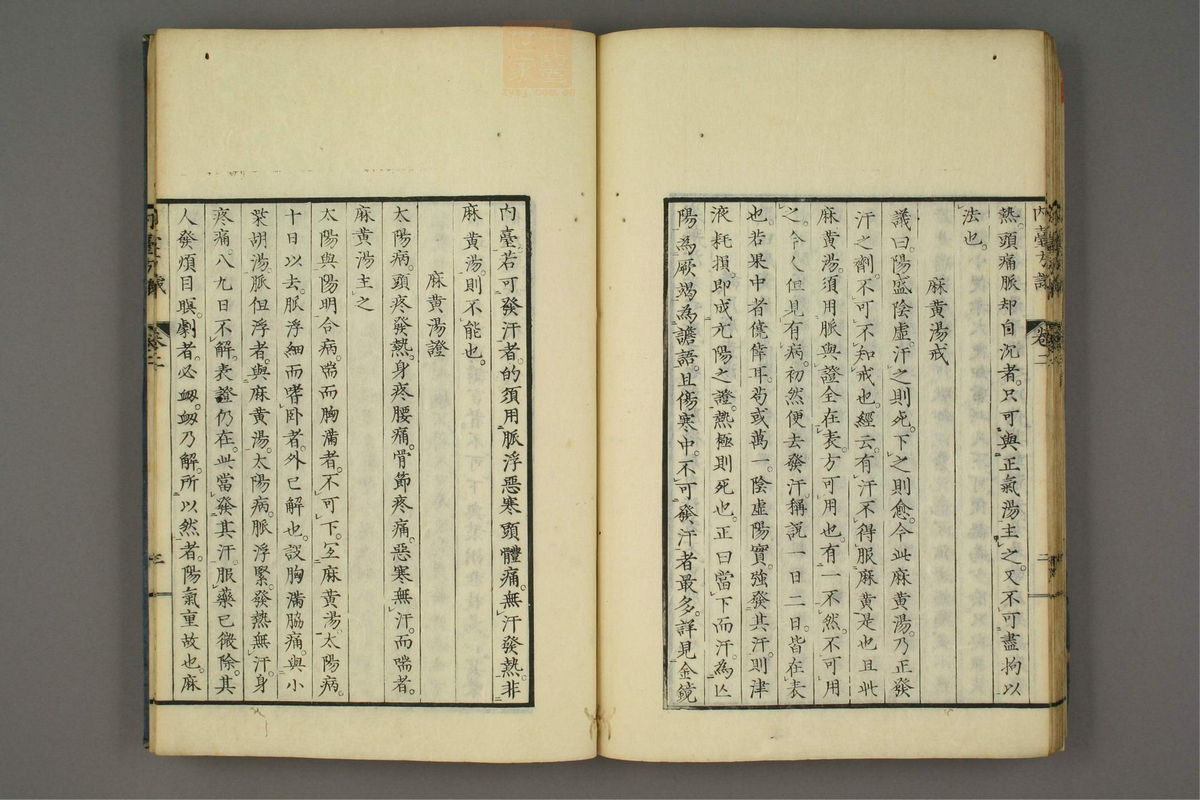 内臺方議 卷二 二
熱。頭痛脈却自沉者。只可與正氣湯主之。又不可盡拘以
法也。
麻黄湯戒
議曰。陽盛陰虛。汗之則死。下之則愈。今此麻黄湯。乃正發
汗之劑。不可不知戒也。經云。有汗不得服麻黄是也。且此
麻黄湯。須用脈與證全在表。方可用也。有一不然。不可用
之。今人但見有病。初然便去發汗。稱説一日二日。皆在表
也。若果中者僥倖耳。苟或萬一陰虛陽實。強發其汗。則津
液耗損。即成亢陽之證。熱極則死也。正曰當下而汗。為亾
陽。為厥竭。為譫語。且傷寒中。不可發汗者最多。詳見金鏡
内臺。若可發汗者。的須用脈浮惡寒頭體痛。無汗發熱。非
麻黄湯則不能也。
麻黄湯證
太陽病。頭疼發熱。身疼腰痛。骨節疼痛。惡寒無汗。而喘者。
麻黄湯主之
太陽與陽明合病。喘而胸滿者。不可下。宜麻黄湯。太陽病。
十日以去。脈浮細而嗜卧者。外已解也。設胸滿脇痛。與小
柴胡湯。脈但浮者。與麻黄湯。太陽病。脈浮緊。發熱無汗。身
疼痛。八九日不解。表證仍在。此當發其汗。服藥已微除。其
人發煩目瞑。劇者。必衂。衂乃解。所以然者。陽氣重故也。麻
卷二 三